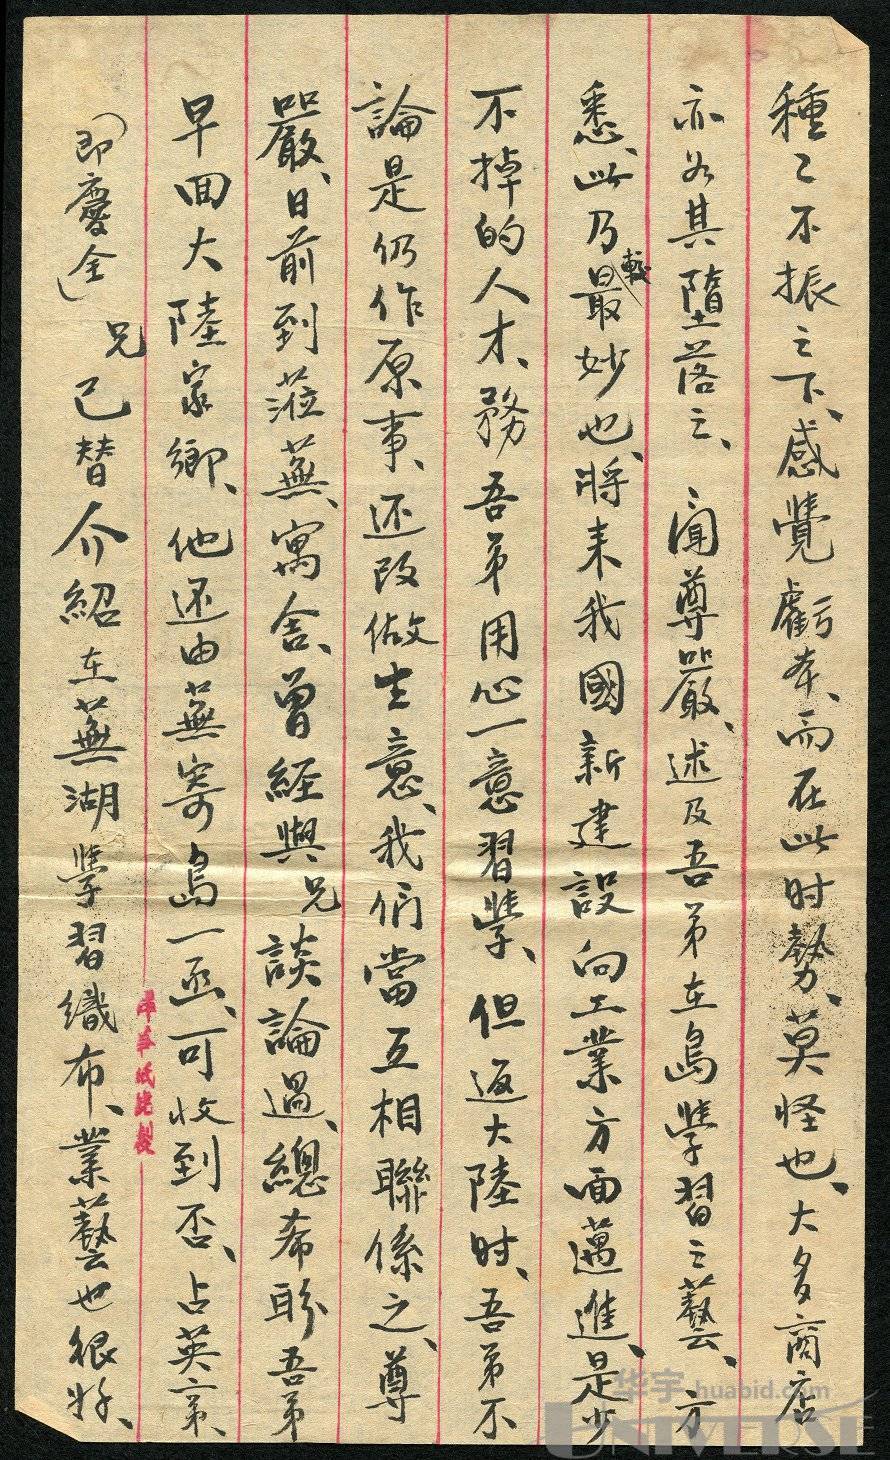 種〻不振之下、感覺虧本、而在此时勢、莫怪也、大多商店
亦为其墮落之、聞尊嚴、述及吾弟在島學習之藝、万
悉、此乃最較妙也、將来我國新建設向工業方面邁進、是少
不掉的人才、務吾弟用心一意習學、但返大陸时、吾弟不
論是仍作原事、还改做生意、我们當互相聯係之、尊
嚴、日前到蒞蕪、寓舍、曾經與兄談論過、總希盼吾弟
早回大陸家鄉、他还由蕪寄島一函、可收到否、占英弟、
(即慶全) 兄已替介紹在蕪湖學習織布、業藝也很好、
華 紙 製
华宇 huabid.com
UNIVERSE